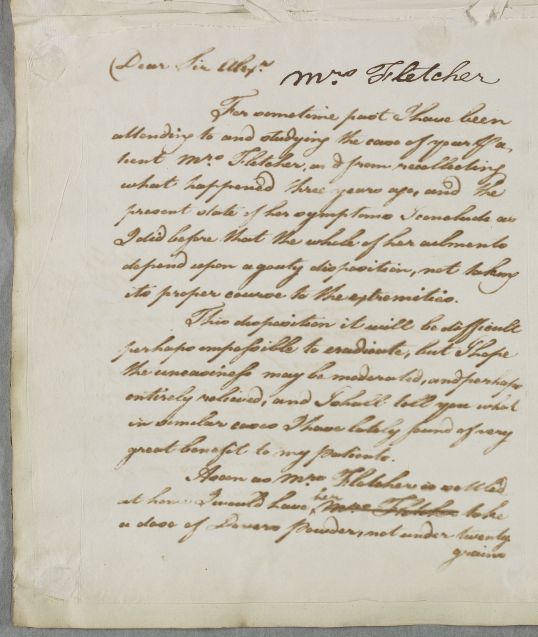 Dear Sir Alexr.
Mrs. Fletcher
For sometime past I have been
attending to and studying the case of your Pa,
tient Mrs. Fletcher, as & from recollecting
what happened three years ago, and the
present state of her symptoms I conclude as
I did before that the whole of her ailments
depend upon a gouty disposition, not taking
its proper course to the extremities.
This disposition it will be difficult
perhaps impossible to eradicate, but I hope
the uneasiness may be moderated, and perhaps
entirely relieved, and I shall tell you what
in similar cases I have lately found of very
great benefit to my patients.
As soon as Mrs. Fletcher is settled
at home I would have her Mrs. Fletcher take
a dose of Dovers Powder, not under twenty
grains